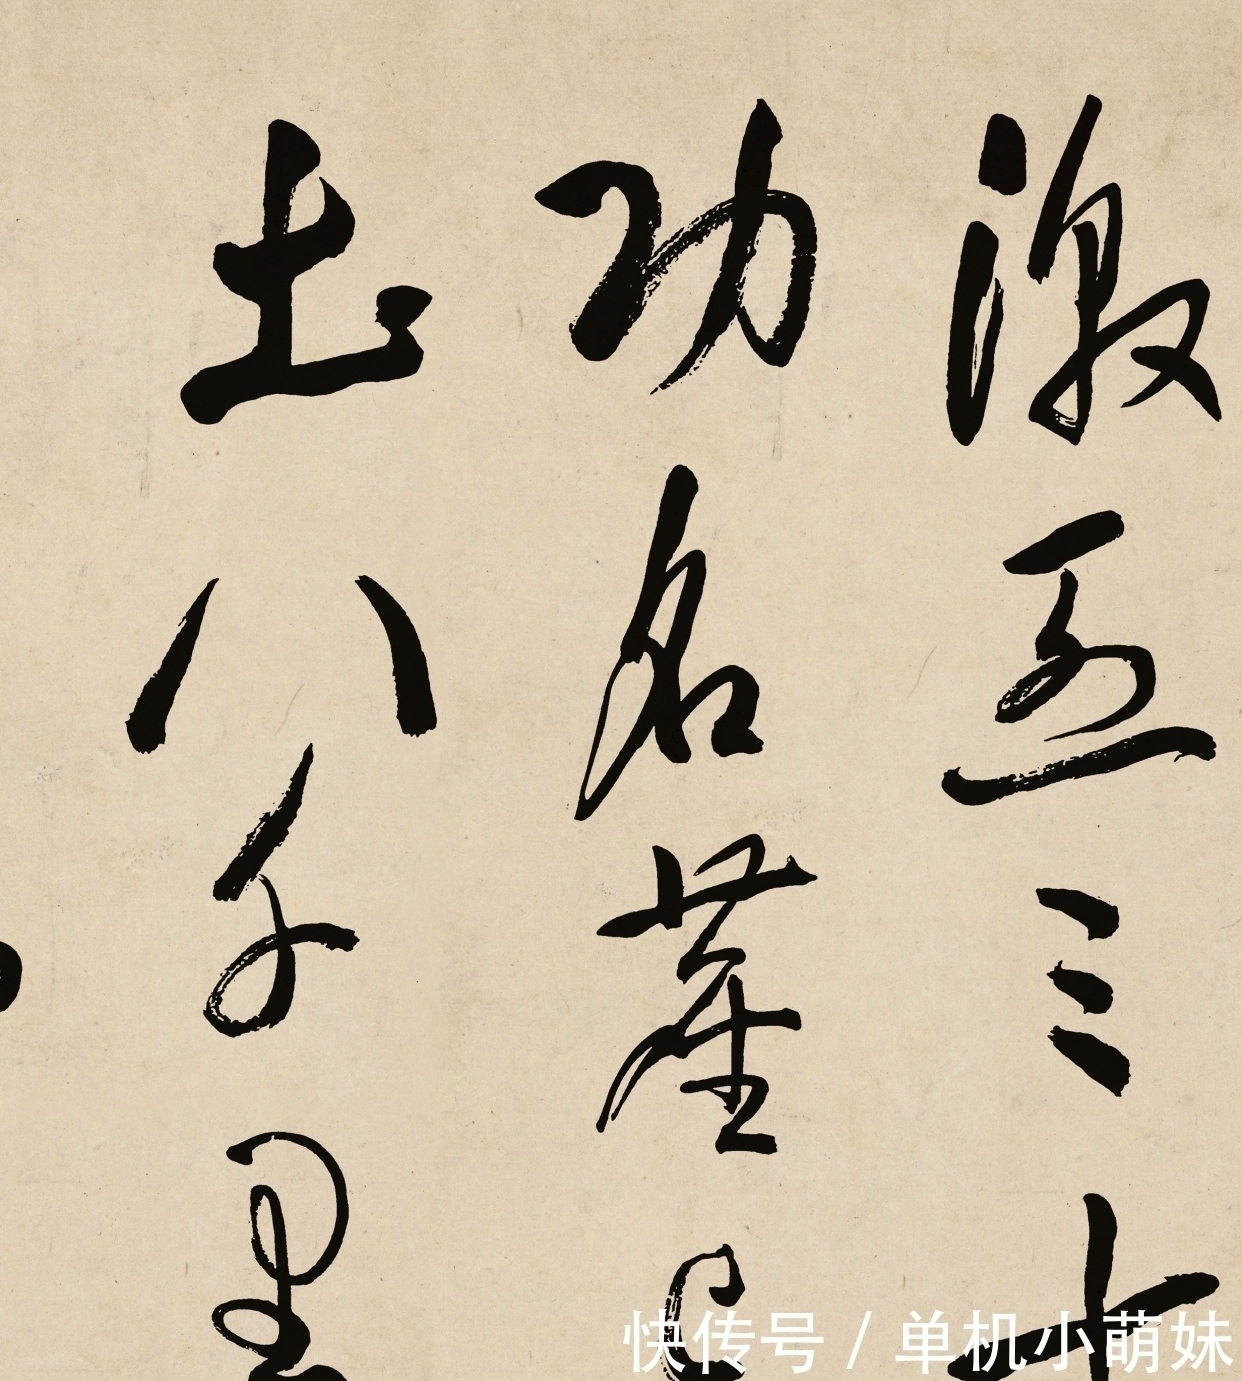 激烈三十
功名塵
土八千里
快传号 / 单机小萌妹